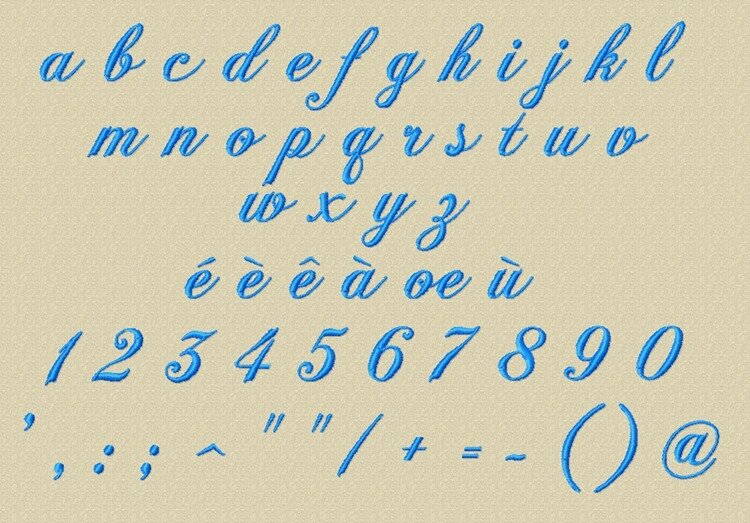 a b c d e f g h i j k l
m n o p q r s t u v
w x y z
é è ê à oe ù
1 2 3 4 5 6 7 8 9 0
' , : ; ^ " " / + = - ( ) @